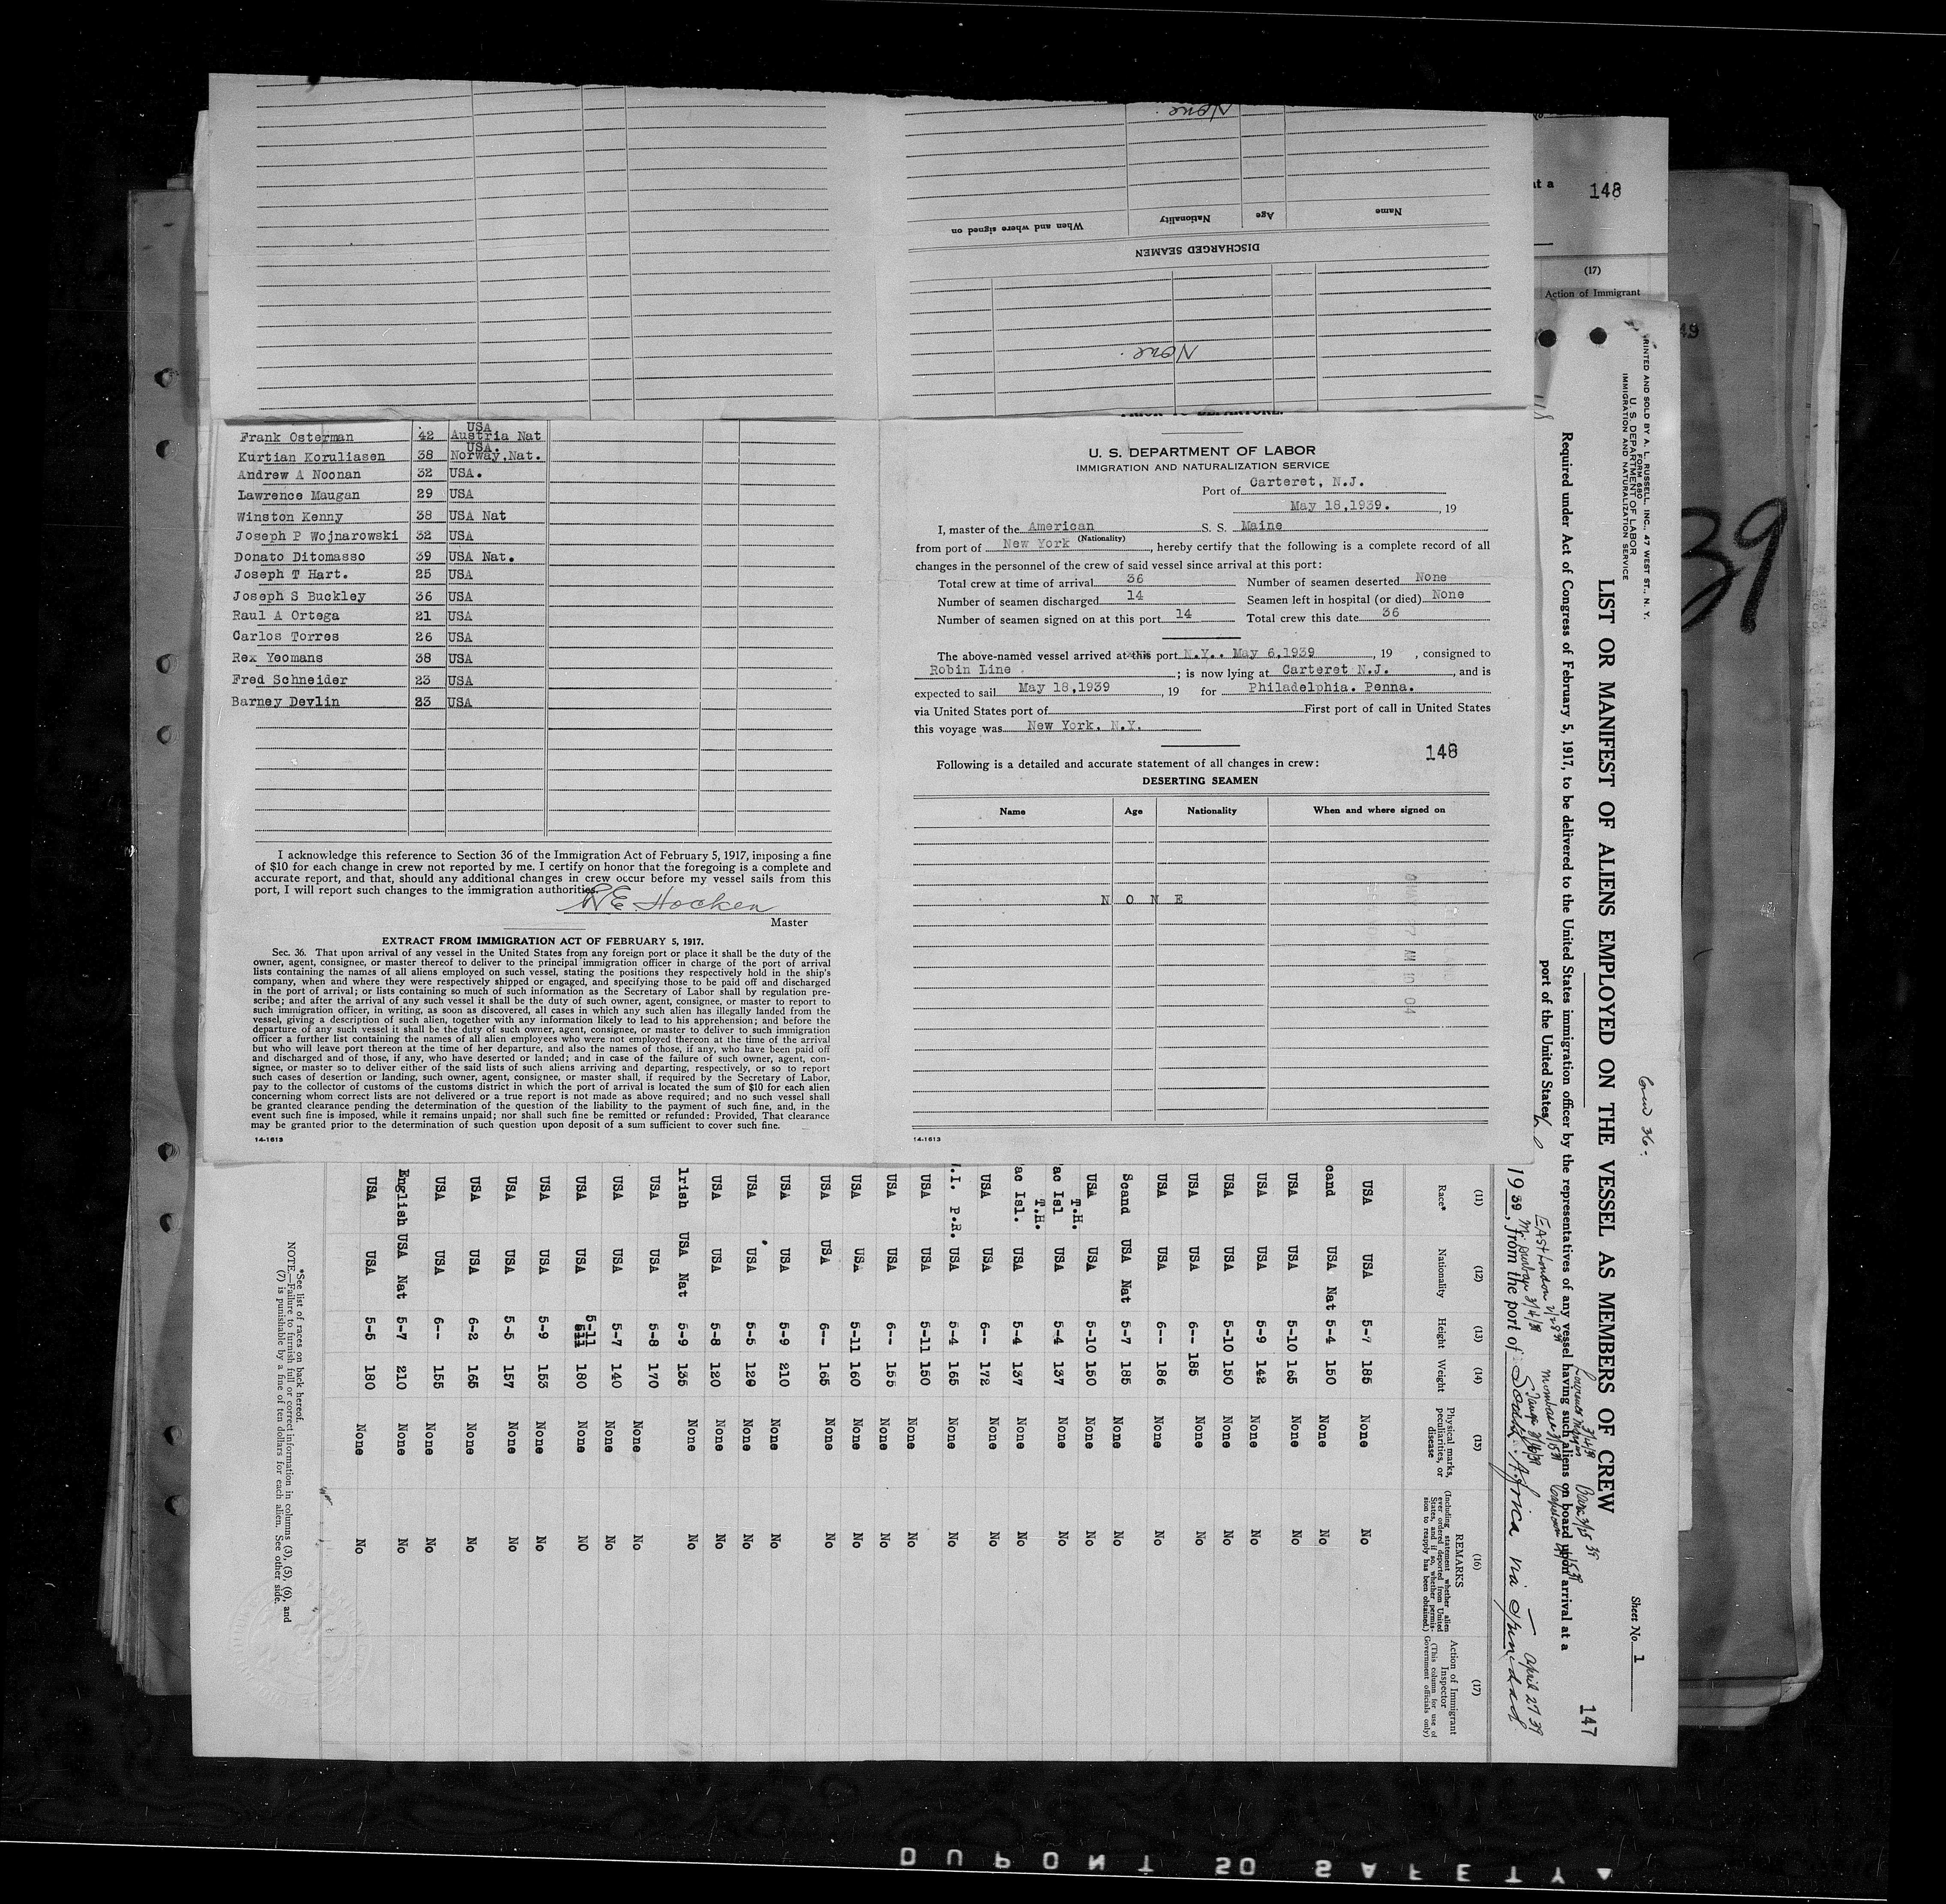 None.
Name
Age
Nationality
When and where signed on
DISCHARGED SEAMEN
None.
Frank Osterman 42 USA Austria Nat
Kurtian Koruliasen 38 USA. Norway,Nat.
Andrew A Noonan 32 USA.
Lawrence Maugan 29 USA
Winston Kenny 38 USA Nat
Joseph P Wojnarowski 32 USA
Donato Ditomasso 39 USA Nat.
Joseph T Hart. 25 USA
Joseph S Buckley 36 USA
Raul A Ortega 21 USA
Carlos Torres 26 USA
Rex Yeomans 38 USA
Fred Schneider 23 USA
Barney Devlin 23 USA
I acknowledge this reference to Section 36 of the Immigration Act of February 5, 1917, imposing a fine
of $10 for each change in crew not reported by me. I certify on honor that the foregoing is a complete and
accurate report, and that, should any additional changes in crew occur before my vessel sails from this
port, I will report such changes to the immigration authorities.
Hocken
Master
EXTRACT FROM IMMIGRATION ACT OF FEBRUARY 5, 1917.
Sec. 36. That upon arrival of any vessel in the United States from any foreign port or place it shall be the duty of the
owner, agent, consignee, or master thereof to deliver to the principal immigration officer in charge of the port of arrival
lists containing the names of all aliens employed on such vessel, stating the positions they respectively hold in the ship's
company, when and where they were respectively shipped or engaged, and specifying those to be paid off and discharged
in the port of arrival; or lists containing so much of such information as the Secretary of Labor shall by regulation pre-
scribe; and after the arrival of any such vessel it shall be the duty of such owner, agent, consignee, or master to report to
such immigration officer, in writing, as soon as discovered, all cases in which any such alien has illegally landed from the
vessel, giving a description of such alien, together with any information likely to lead to his apprehension; and before the
departure of any such vessel it shall be the duty of such owner, agent, consignee, or master to deliver to such immigration
officer a further list containing the names of all alien employees who were not employed thereon at the time of the arrival
but who will leave port thereon at the time of her departure, and also the names of those, if any, who have been paid off
and discharged and of those, if any, who have deserted or landed; and in case of the failure of such owner, agent, con-
signee, or master so to deliver either of the said lists of such aliens arriving and departing, respectively, or so to report
such cases of desertion or landing, such owner, agent, consignee, or master shall, if required by the Secretary of Labor,
pay to the collector of customs of the customs district in which the port of arrival is located the sum of $10 for each alien
concerning whom correct lists are not delivered or a true report is not made as above required; and no such vessel shall
be granted clearance pending the determination of the question of the liability to the payment of such fine, and, in the
event such fine is imposed, while it remains unpaid; nor shall such fine be remitted or refunded: Provided, That clearance
may be granted prior to the determination of such question upon deposit of a sum sufficient to cover such fine.
14-1613
U. S. DEPARTMENT OF LABOR
IMMIGRATION AND NATURALIZATION SERVICE
Port of Carteret, N.J.
May 18,1939. , 19
I, master of the American S. S. Maine
(Nationality)
from port of New York , hereby certify that the following is a complete record of all
changes in the personnel of the crew of said vessel since arrival at this port:
Total crew at time of arrival 36 Number of seamen deserted None
Number of seamen discharged 14 Seamen left in hospital (or died) None
Number of seamen signed on at this port 14 Total crew this date 36
The above-named vessel arrived at this port N.Y.. May 6.1939 , 19 , consigned to
Robin Line . ; is now lying at Carteret N.J. , and is
expected to sail May 18,1939 , 19 for Philadelphia. Penna.
via United States port of First port of call in United States
this voyage was New York. N.Y.
148
Following is a detailed and accurate statement of all changes in crew:
DESERTING SEAMEN
Name Age Nationality When and where signed on
N O N E
14-1613
at a 148
(17)
Action of Immigrant
49
39
PRINTED AND SOLD BY A. L. RUSSELL, INC., 47 WEST ST., N. Y.
FORM 680
U. S. DEPARTMENT OF LABOR
IMMIGRATION AND NATURALIZATION SERVICE
Crew 36.
Sheet No. 1
147
LIST OR MANIFEST OF ALIENS EMPLOYED ON THE VESSEL AS MEMBERS OF CREW
Required under Act of Congress of February 5, 1917, to be delivered to the United States immigration officer by the representatives of any vessel having such aliens on board upon arrival at a
port of the United States
East London 2/28/39
April 27 39
1939, from the port of South Africa via Trinidad
(11) (12) (13) (14) (15) (16) (17)
Race* Nationality Height Weight Physical marks, peculiarities, or disease
REMARKS
(Including statement whether alien ever ordered deported from United States, and if so, whether permission to reapply has been obtained.)
Action of Immigrant Inspector
(This column for use of Government officials only)
USA USA 5-7 185 None No
cand USA Nat 5-4 150 None No
USA USA 5-10 165 None No
USA USA 5-9 142 None No
USA USA 5-10 150 None No
USA USA 6-- 185 None No
USA USA 6-- 186 None No
Scand USA Nat 5-7 185 None No
USA USA 5-10 150 None No
T.H.
ac Isl USA 5-4 137 None No
T.H.
ac Isl. USA 5-4 137 None No
USA USA 6-- 172 None No
.I. P.R. USA 5-4 165 None No
USA USA 5-11 150 None No
USA USA 6-- 155 None No
USA USA 5-11 160 None No
USA USA 6-- 165 None No
USA USA 5-9 210 None No
USA USA 5-5 129 None No
USA USA 5-8 120 None No
Irish USA Nat 5-9 135 None No
USA USA 5-8 170 None No
USA USA 5-7 140 None No
USA USA 5-11 180 None NO
USA USA 5-9 153 None No
USA USA 5-5 157 None No
USA USA 6-2 165 None No
USA USA 6-- 155 None No
English USA Nat 5-7 210 None No
USA USA 5-5 180 None No
*See list of races on back hereof.
NOTE.—Failure to furnish full or correct information in columns (3), (5), (6), and
(7) is punishable by a fine of ten dollars for each alien. See other side.
DUPONT SO SAFETY